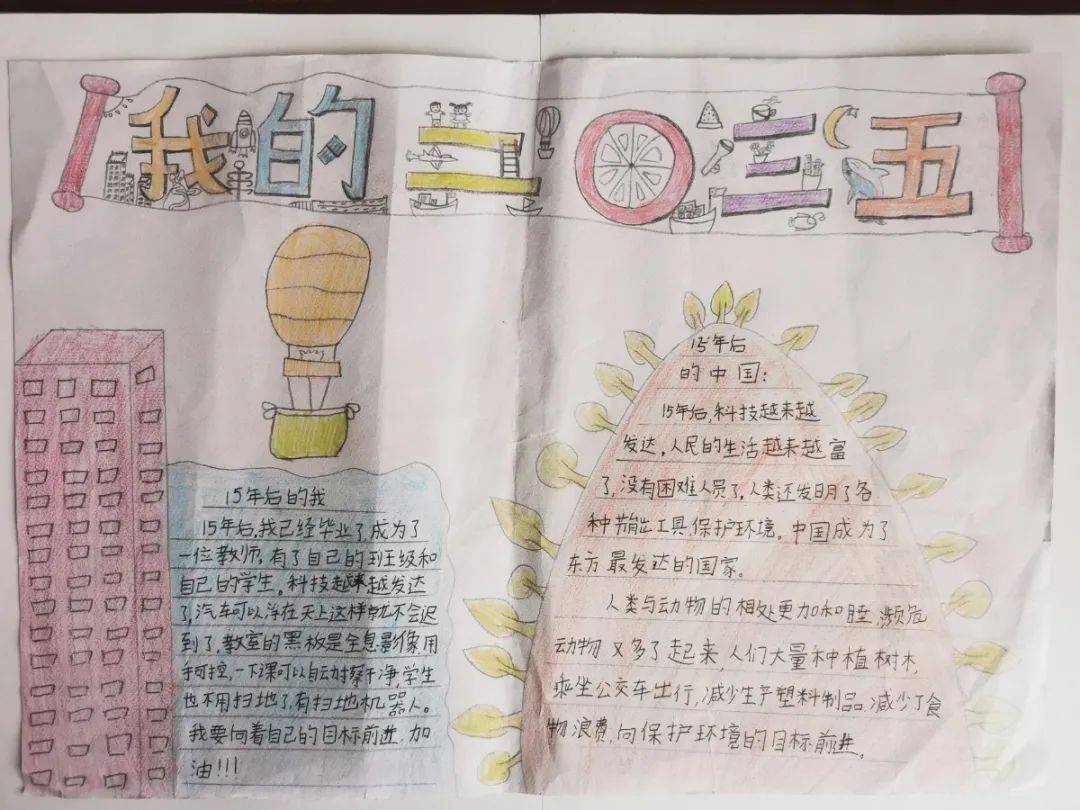 我的二〇三五
15年后的我
15年后,我已经毕业了,成为了
一位教师,有了自己的班级和
自己的学生。科技越来越发达
了,汽车可以浮在天上这样就不会迟
到了,教室的黑板是全息影像用
手可控,一下课可以自动擦干净,学生
也不用扫地了,有扫地机器人。
我要向着自己的目标前进,加
油!!!
15年后
的中国:
15年后,科技越来越
发达,人民的生活越来越富
了,没有困难人员了,人类还发明了各
种节能工具,保护环境。中国成为了
东方最发达的国家。
人类与动物的相处更加和睡,濒危
动物又多了起来,人们大量种植树木,
乘坐公交车出行,减少生产塑料制品,减少了食
物浪费,向保护环境的目标前进。